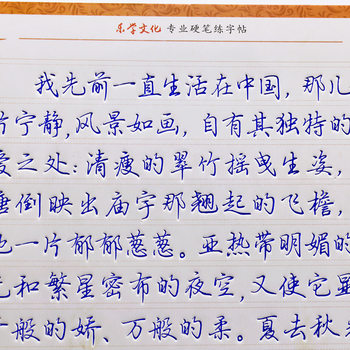 乐学文化 专业硬笔练字帖
我先前一直生活在中国,那儿
宁静,风景如画,自有其独特的
之处:清瘦的翠竹摇曳生姿,
倒映出庙宇那翘起的飞檐,
一片郁郁葱葱。亚热带明媚的
和繁星密布的夜空,又使它
般的娇、万般的柔。夏去秋